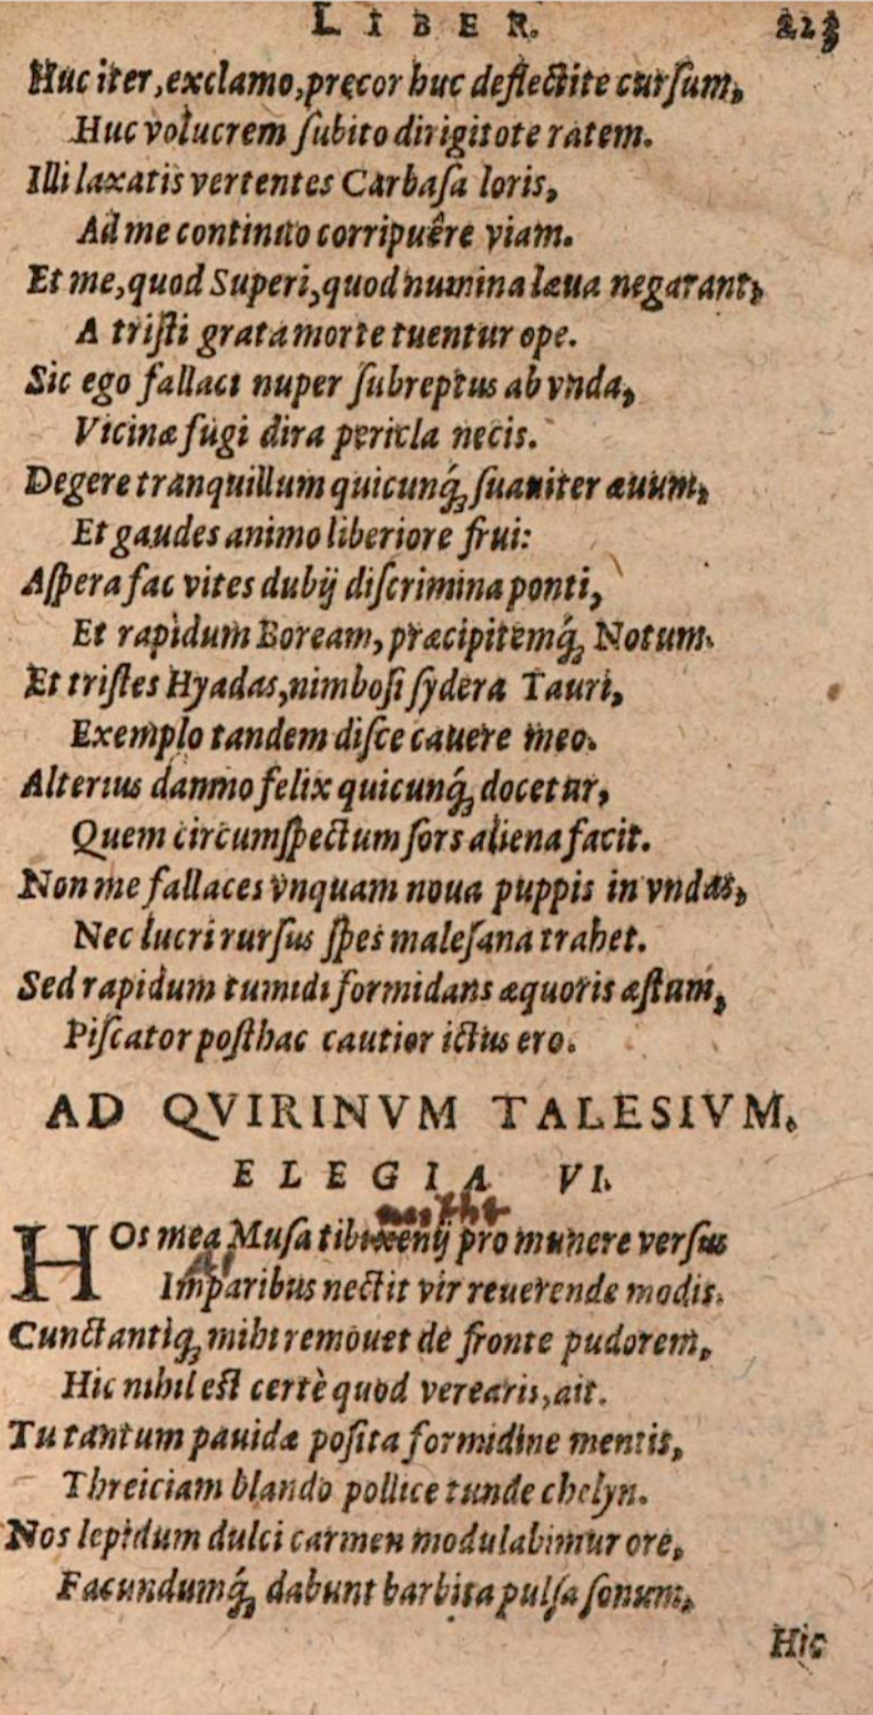 LIBER. 223
Huc iter, exclamo, precor huc deflectite cursum,
Huc volucrem subito dirigitote ratem.
Illi laxatis vertentes Carbasa loris,
Ad me continuo corripuêre viam.
Et me, quod Superi, quod numina læua negarant,
A tristi grata morte tuentur ope.
Sic ego fallaci nuper subreptus ab vnda,
Vicinæ fugi dira pericla necis.
Degere tranquillum quicunq́; suauiter æuum,
Et gaudes animo liberiore frui:
Aspera fac vites dubij discrimina ponti,
Et rapidum Boream, præcipitemq́; Notum.
Et tristes Hyadas, nimbosi sydera Tauri,
Exemplo tandem disce cauere meo.
Alterius damno felix quicunq́; docetur,
Quem circumspectum sors aliena facit.
Non me fallaces vnquam noua puppis in vndas,
Nec lucri rursus spes malesana trahet.
Sed rapidum tumidi formidans æquoris æstum,
Piscator posthac cautior ictus ero.
AD QVIRINVM TALESIVM.
ELEGIA VI.
HOs mea Musa tibi xenij pro munere versus
Imparibus nectit vir reuerende modis.
Cunctantiq; mihi remouet de fronte pudorem,
Hic nihil est certè quod verearis, ait.
Tu tantum pauidæ posita formidine mentis,
Threiciam blando pollice tunde chelyn.
Nos lepidum dulci carmen modulabimur ore,
Facundumq́; dabunt barbita pulsa sonum,
Hic